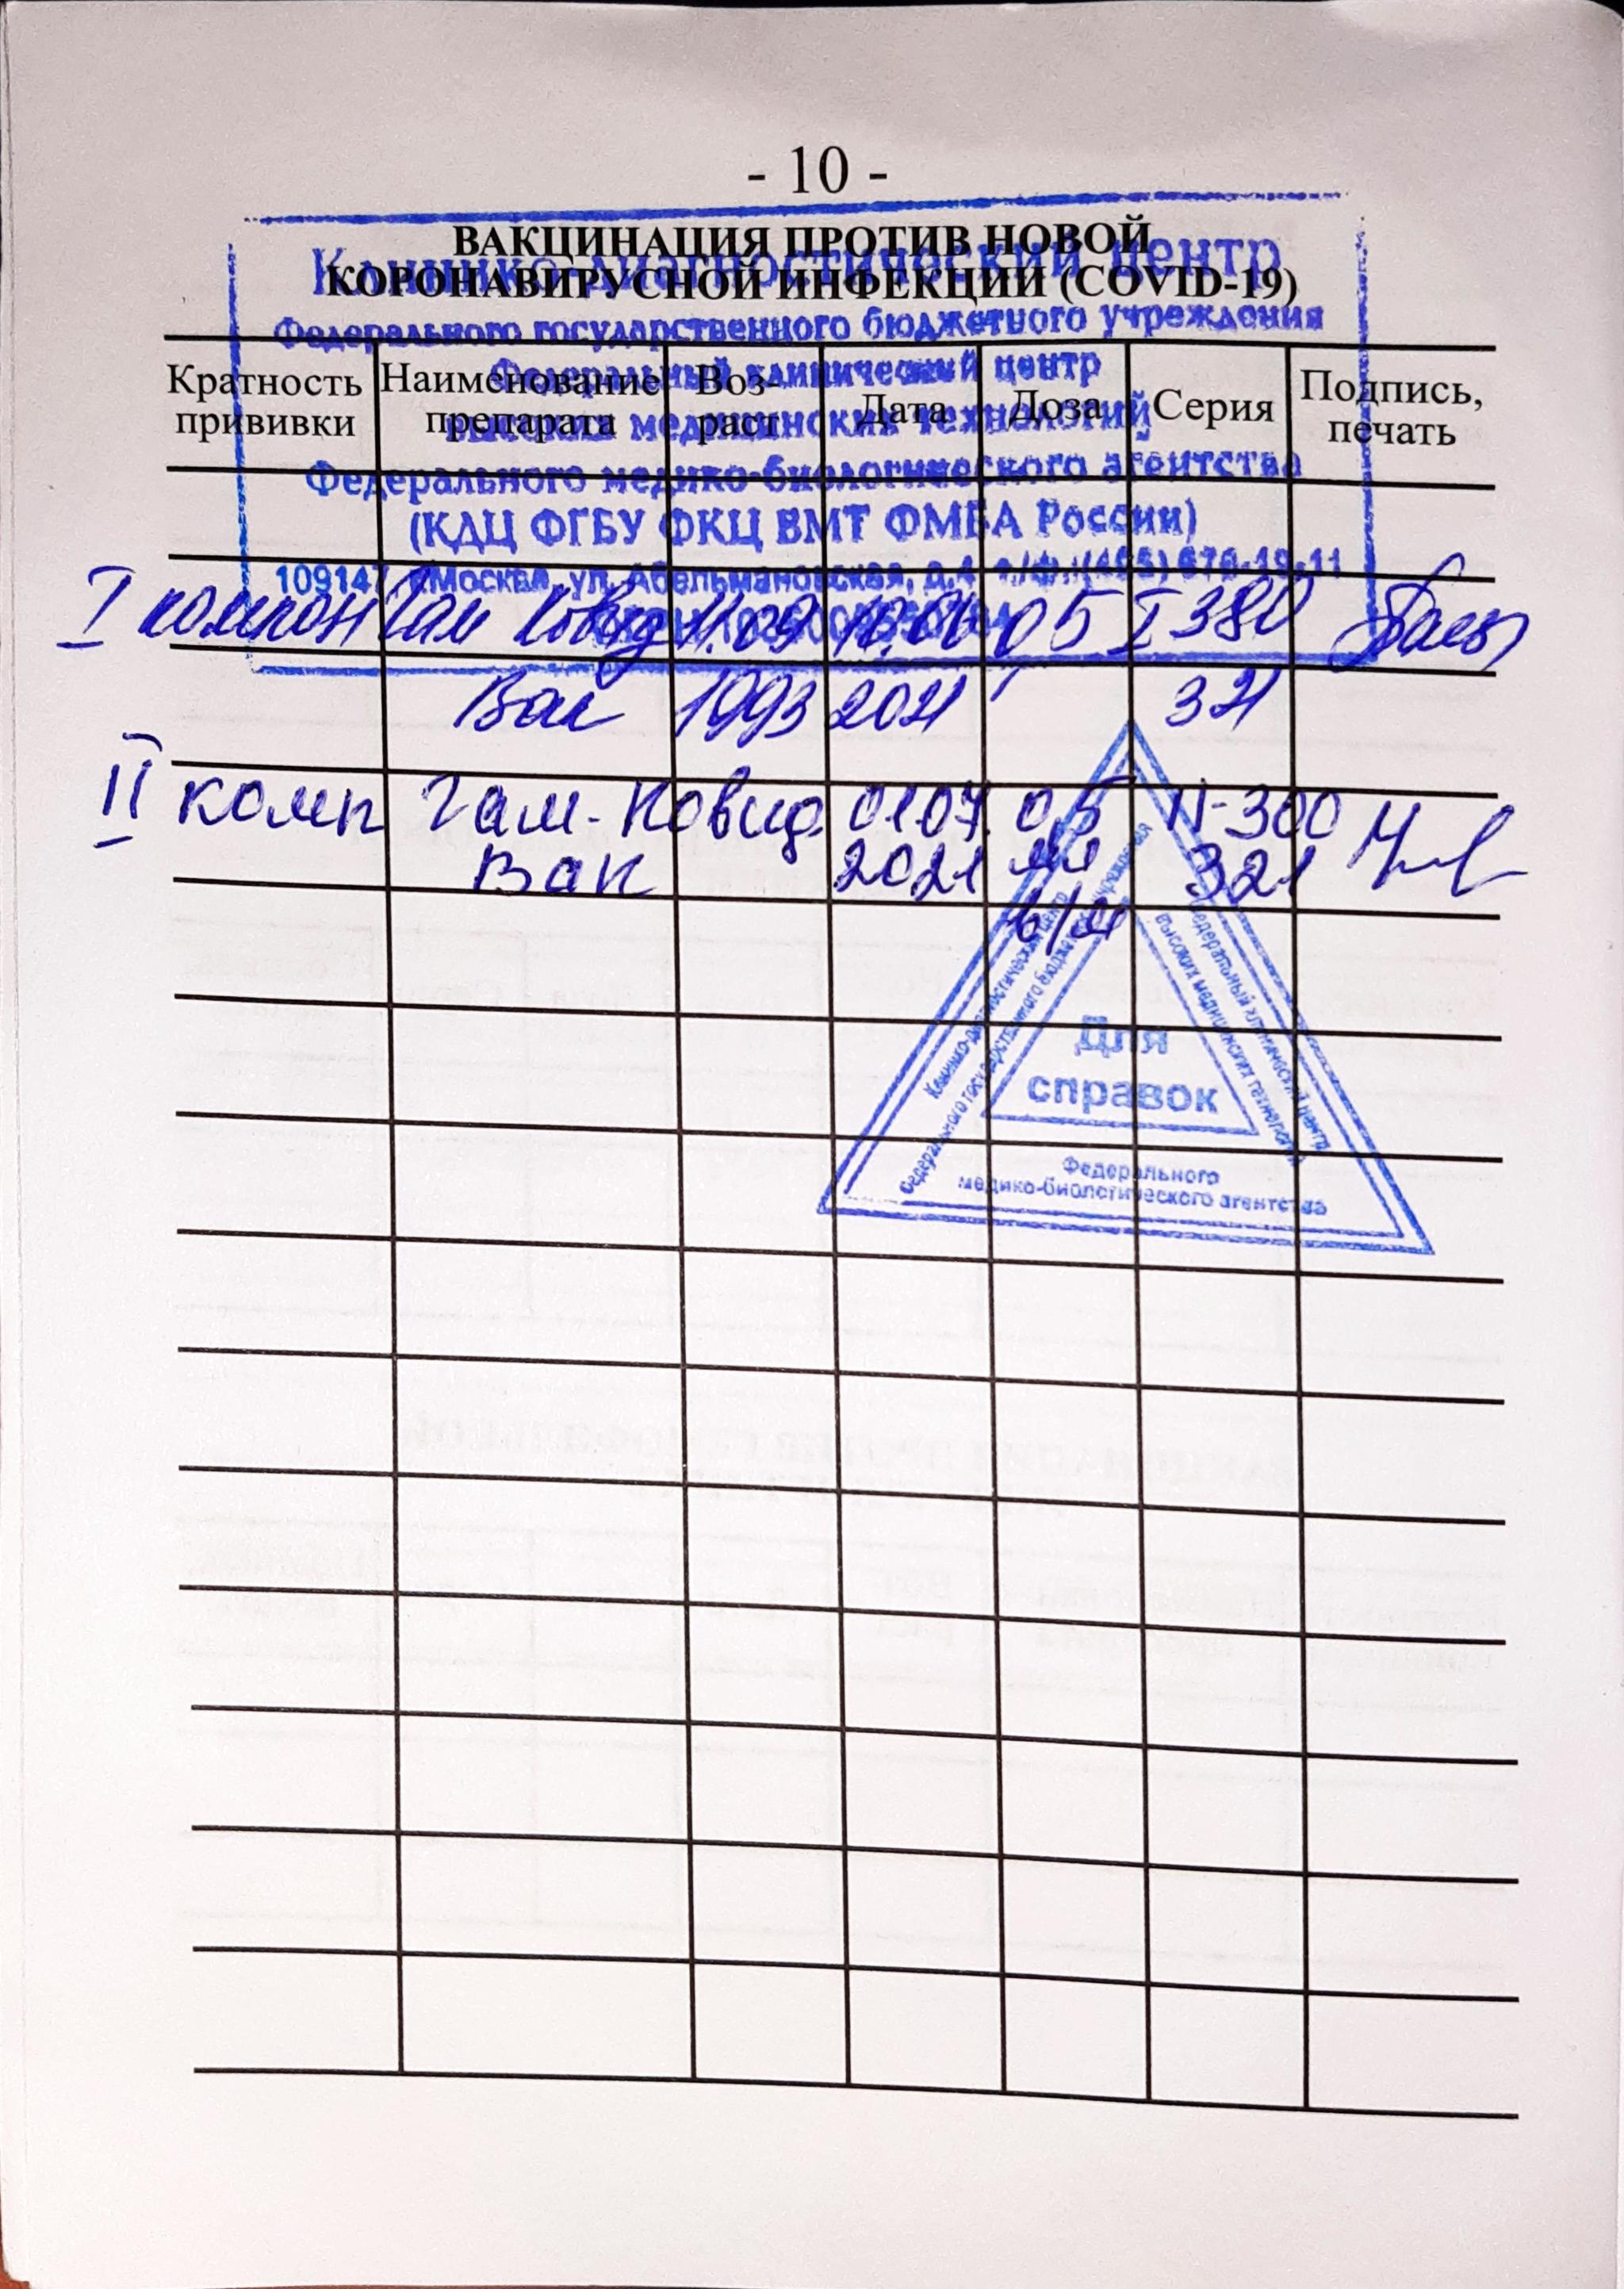 - 10 -
ВАКЦИНАЦИЯ ПРОТИВ НОВОЙ
КОРОНАВИРУСНОЙ ИНФЕКЦИИ (COVID-19)
Клинико-диагностический центр
Федерального государственного бюджетного учреждения
Федеральный клинический центр
высоких медицинских технологий
Федерального медико-биологического агентства
(КДЦ ФГБУ ФКЦ ВМТ ФМБА России)
109147, г.Москва, ул. Абельмановская, д.4
Кратность прививки Наименование препарата Воз-раст Дата Доза Серия Подпись, печать
I компон Гам Ковид 11.09 10.06 0,5 I 380
Вак 1993 2021 321
II комп Гам-Ковид 01.07. 0,5 II-300
Вак 2021 мл 321
в/м
Клинико-диагностический центр
Федерального государственного бюджетного учреждения
Федеральный клинический центр
высоких медицинских технологий
Для
справок
Федерального
медико-биологического агентства